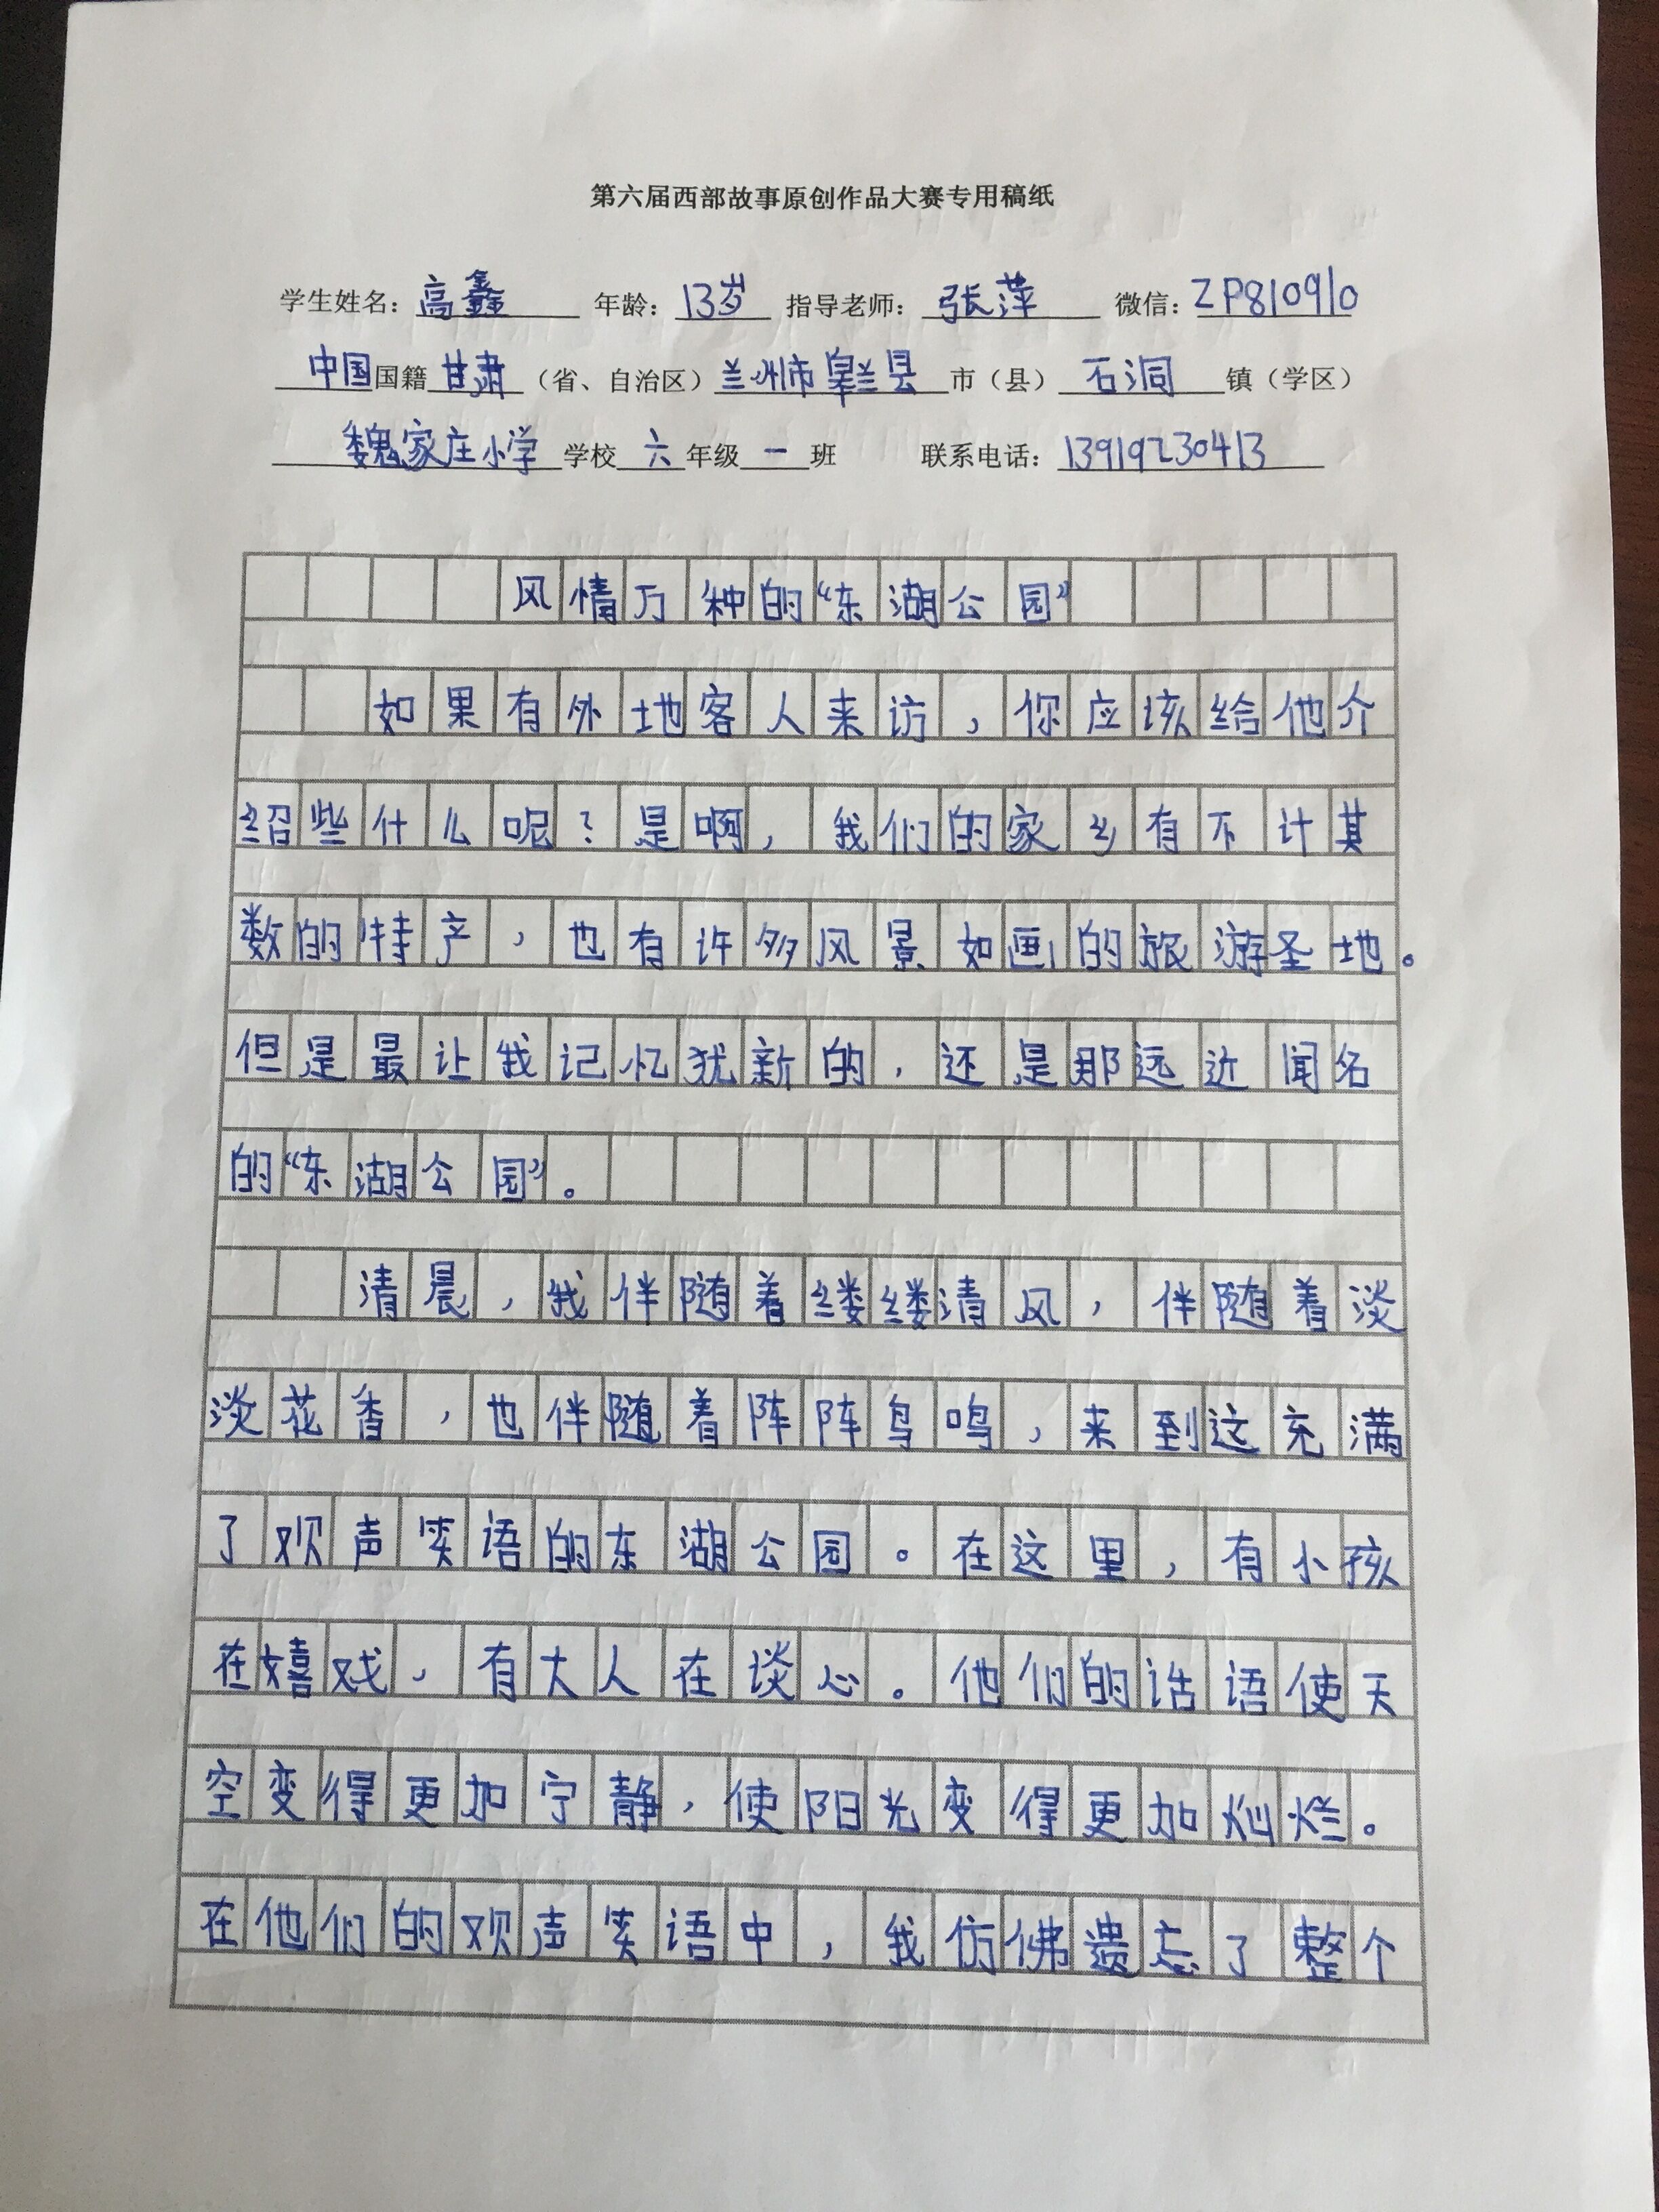 第六届西部故事原创作品大赛专用稿纸
学生姓名：高鑫 年龄：13岁 指导老师：张萍 微信：ZP810910
中国国籍甘肃（省、自治区）兰州市皋兰县市（县）石洞镇（学区）
魏家庄小学学校六年级一班 联系电话：13919230413
风情万种的“东湖公园”
如果有外地客人来访，你应该给他介
绍些什么呢？是啊，我们的家乡有不计其
数的特产，也有许多风景如画的旅游圣地。
但是最让我记忆犹新的，还是那远近闻名
的“东湖公园”。
清晨，我伴随着缕缕清风，伴随着淡
淡花香，也伴随着阵阵鸟鸣，来到这充满
了欢声笑语的东湖公园。在这里，有小孩
在嬉戏，有大人在谈心。他们的话语使天
空变得更加宁静，使阳光变得更加焖烂。
在他们的欢声笑语中，我仿佛遗忘了整个